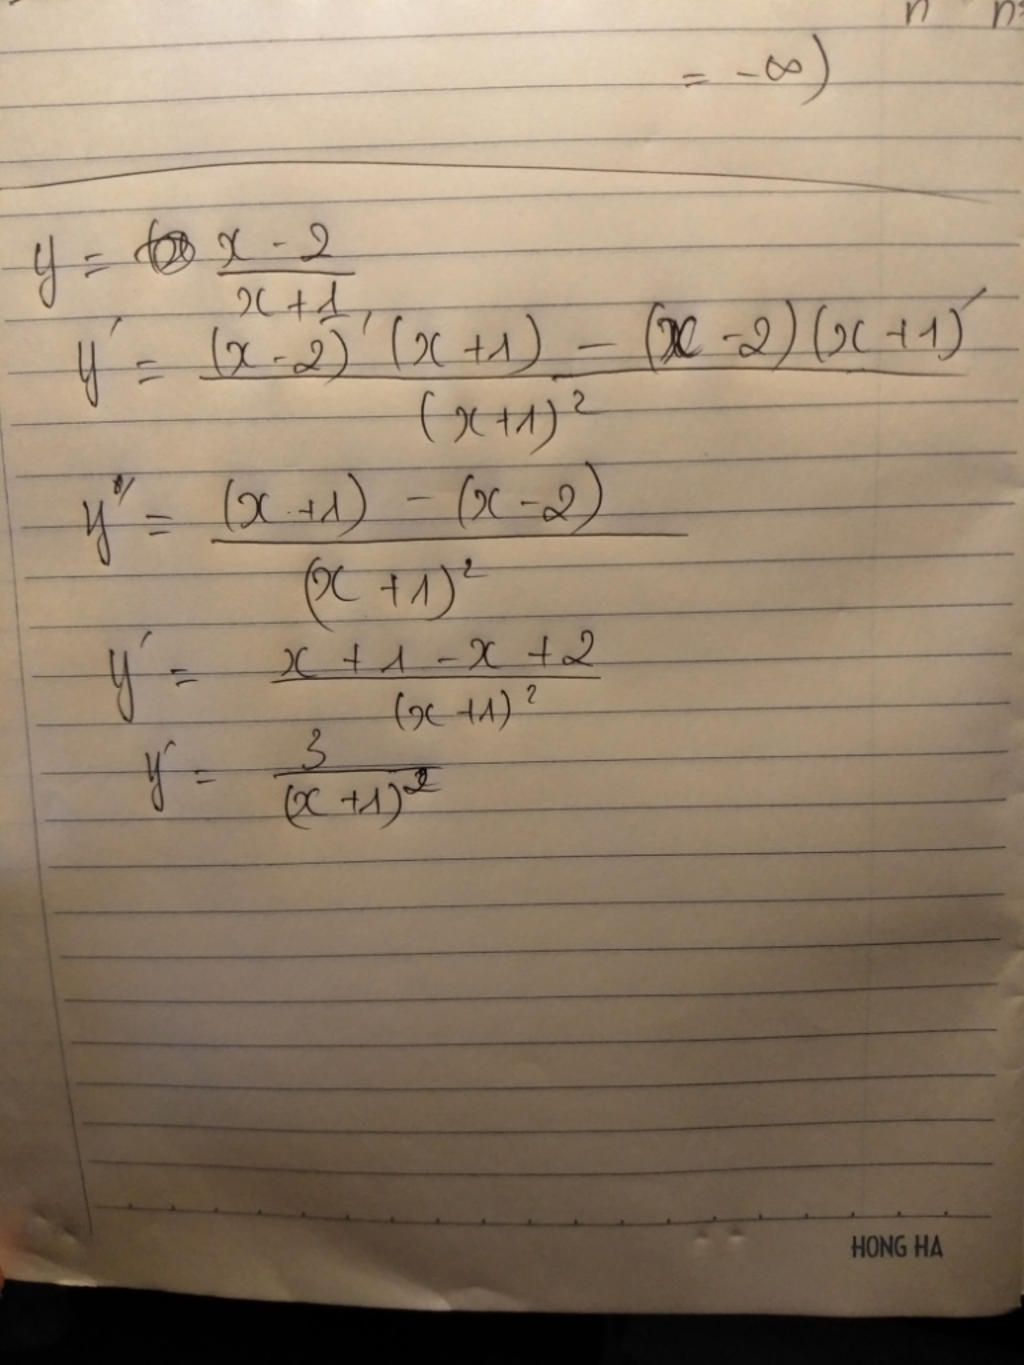 n n
= -∞)
y = x - 2 / x + 1
y' = (x - 2)' (x + 1) - (x - 2) (x + 1)' / (x + 1)²
y' = (x + 1) - (x - 2) / (x + 1)²
y' = x + 1 - x + 2 / (x + 1)²
y' = 3 / (x + 1)²
HONG HA